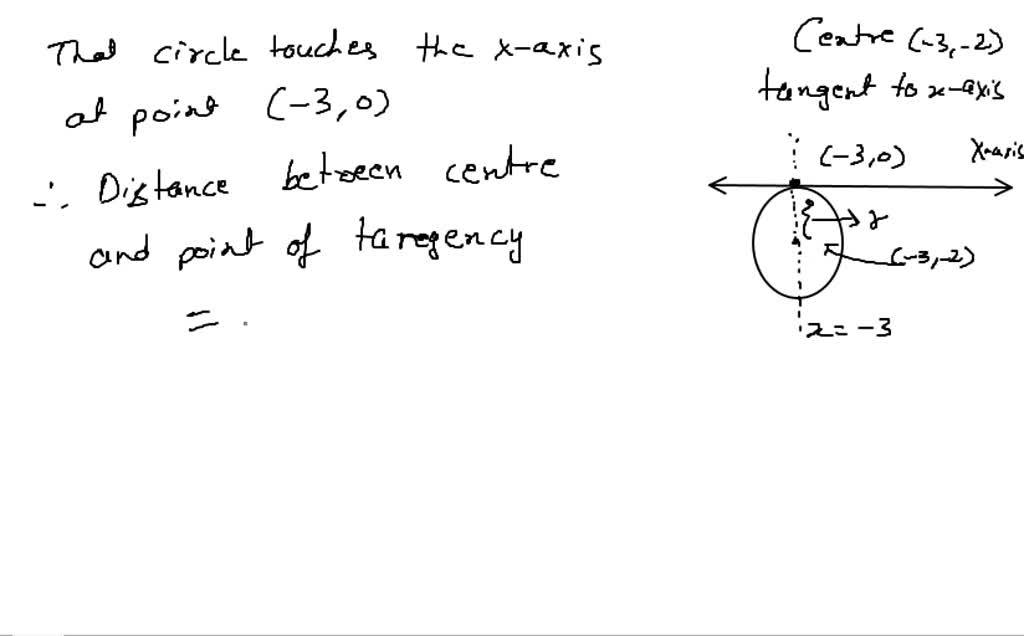 That circle touches the x-axis
at point (-3,0)
∴ Distance between centre
and point of taregency
=
Centre (-3,-2)
tangent to x-axis
(-3,0) X-axis
r
(-3,-2)
x=-3